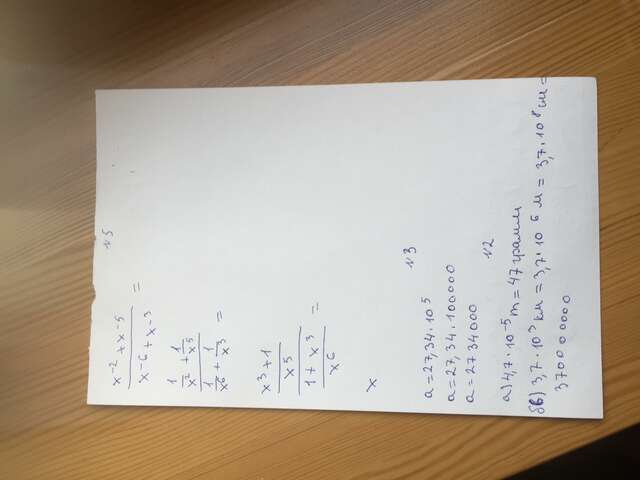 №5
x⁻² + x⁻⁵ / x⁻⁶ + x⁻³ =
1/x² + 1/x⁵ / 1/x⁶ + 1/x³ =
x³+1 / x⁵ / 1 + x³ / x⁶ =
x
№3
a = 27,34 · 10⁵
a = 27,34 · 100000
a = 2734000
№2
а) 4,7 · 10⁻⁵ т = 47 грамм
в) 3,7 · 10³ км = 3,7 · 10⁶ м = 3,7 · 10⁸ см =
370000000